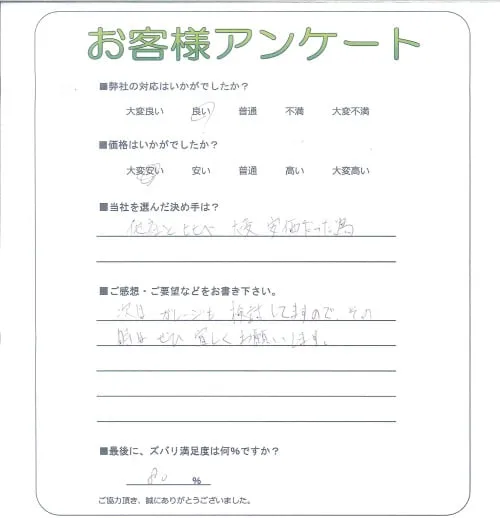 お客様アンケート
■弊社の対応はいかがでしたか？
大変良い 良い 普通 不満 大変不満
■価格はいかがでしたか？
大変安い 安い 普通 高い 大変高い
■当社を選んだ決め手は？
他店と比べ 大変 安価だった為
■ご感想・ご要望などをお書き下さい。
次は ガレージも 検討してますので、その
時は ぜひ 宜しくお願いします。
■最後に、ズバリ満足度は何%ですか？
80 %
ご協力頂き、誠にありがとうございました。